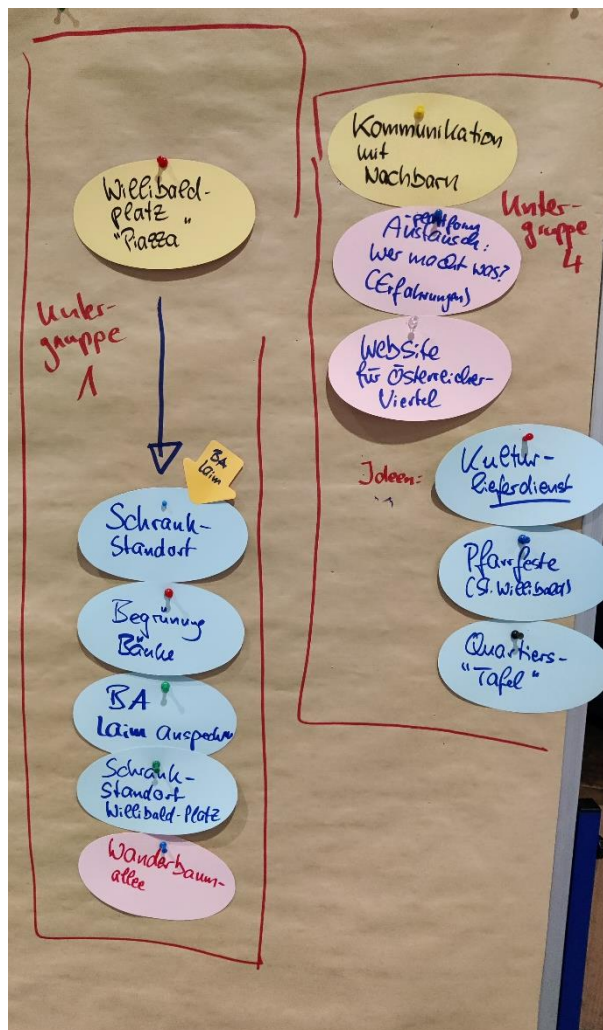 Willibald-
platz
"Piazza"
Unter-
gruppe
1
BA
Laim
Schrank-
Standort
Begrünung
Bänke
BA
Laim ansprechen
Schrank-
Standort
Willibald-Platz
Wanderbaum-
allee
Kommunikation
mit
Nachbarn
Unter-
gruppe
4
-plattform
Austausch:
Wer macht was?
(Erfahrungen)
Website
für Österreicher-
Viertel
Ideen:
Kultur-
lieferdienst
Pfarrfeste
(St. Willibald)
Quartiers-
"Tafel"